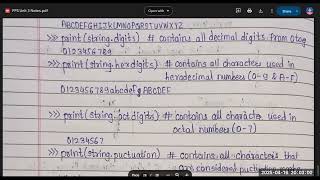 PPS Unit 3 Notes.pdf
ABCDEFGHIJKLMNOPQRSTUVWXYZ
>>> print(string.digits) # contains all decimal digits from 0 to 9
0123456789
>>> print(string.hexdigits) # contains all characters used in
hexadecimal numbers (0-9 & A-F)
0123456789abcdefABCDEF
>>> print(string.octdigits) # contains all character used in
octal numbers (0-7)
01234567
>>> print(string.puctuation) # contains all characters that
are considered puctuation